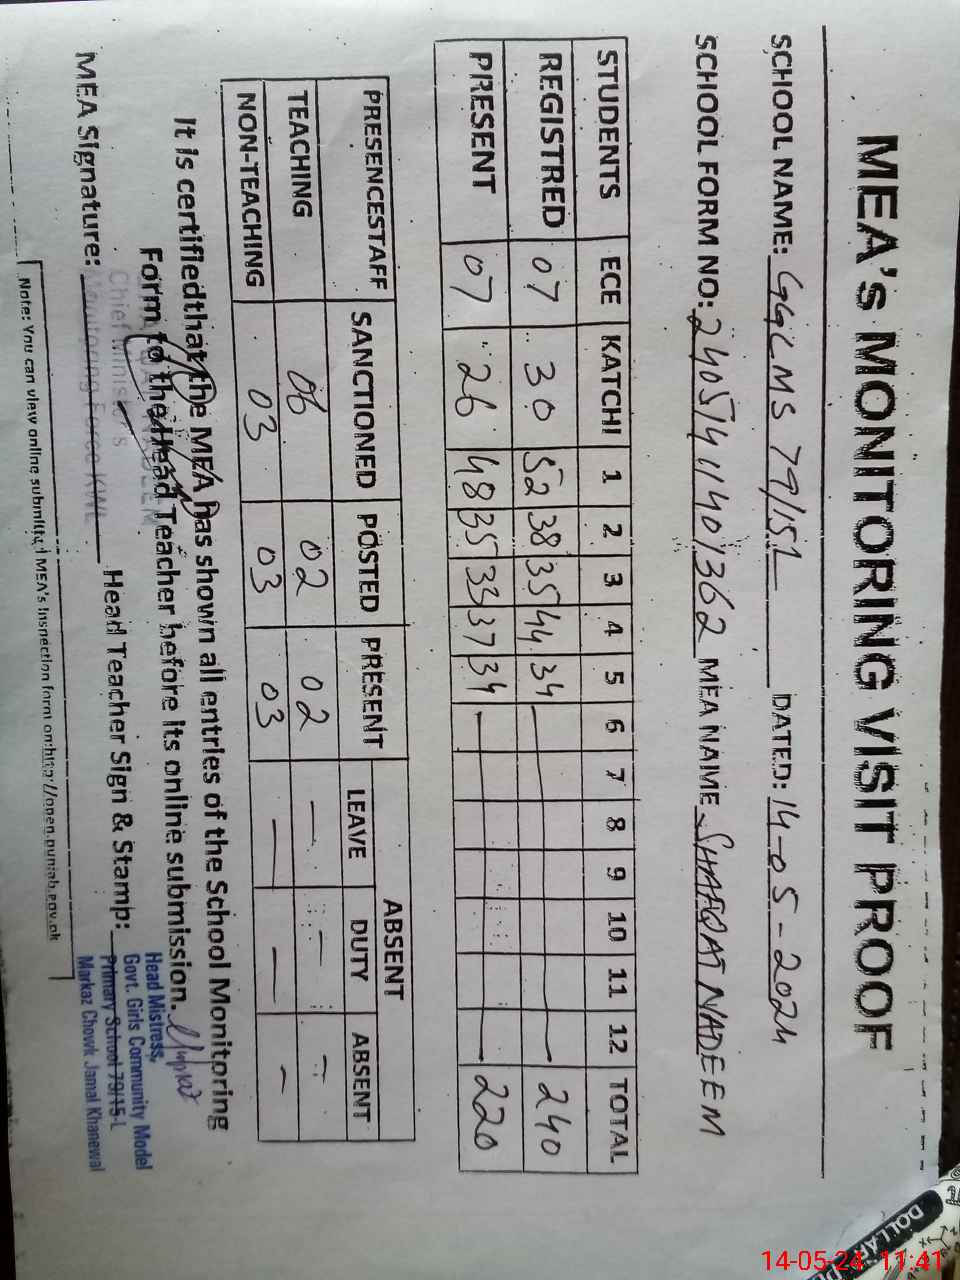 MEA's MONITORING VISIT PROOF
SCHOOL NAME: GGCMS 79/15L DATED: 14-05-2024
SCHOOL FORM NO: 24051411401362 MEA NAME SHAFQAT NADEEM
STUDENTS ECE KATCHI 1 2 3 4 5 6 7 8 9 10 11 12 TOTAL
REGISTRED 07 30 52 38 35 44 34 240
PRESENT 07 26 48 35 33 37 34 220
PRESENCESTAFF SANCTIONED POSTED PRESENT ABSENT
LEAVE DUTY ABSENT
TEACHING 06 02 02 - - -
NON-TEACHING 03 03 03 - - -
It is certifiedthat the MEA has shown all entries of the School Monitoring
Form to the Head Teacher before its online submission.
MEA Signature: Head Teacher Sign & Stamp:
NADEEM
Chief Minister's
Monitoring Force KWL
Head Mistress,
Govt. Girls Community Model
Primary School 79/15-L
Markaz Chowk Jamal Khanewal
Note: You can view online submitted MEA's Inspection form on:http://open.punjab.gov.pk
DOLLAR
14-05-24 11:41